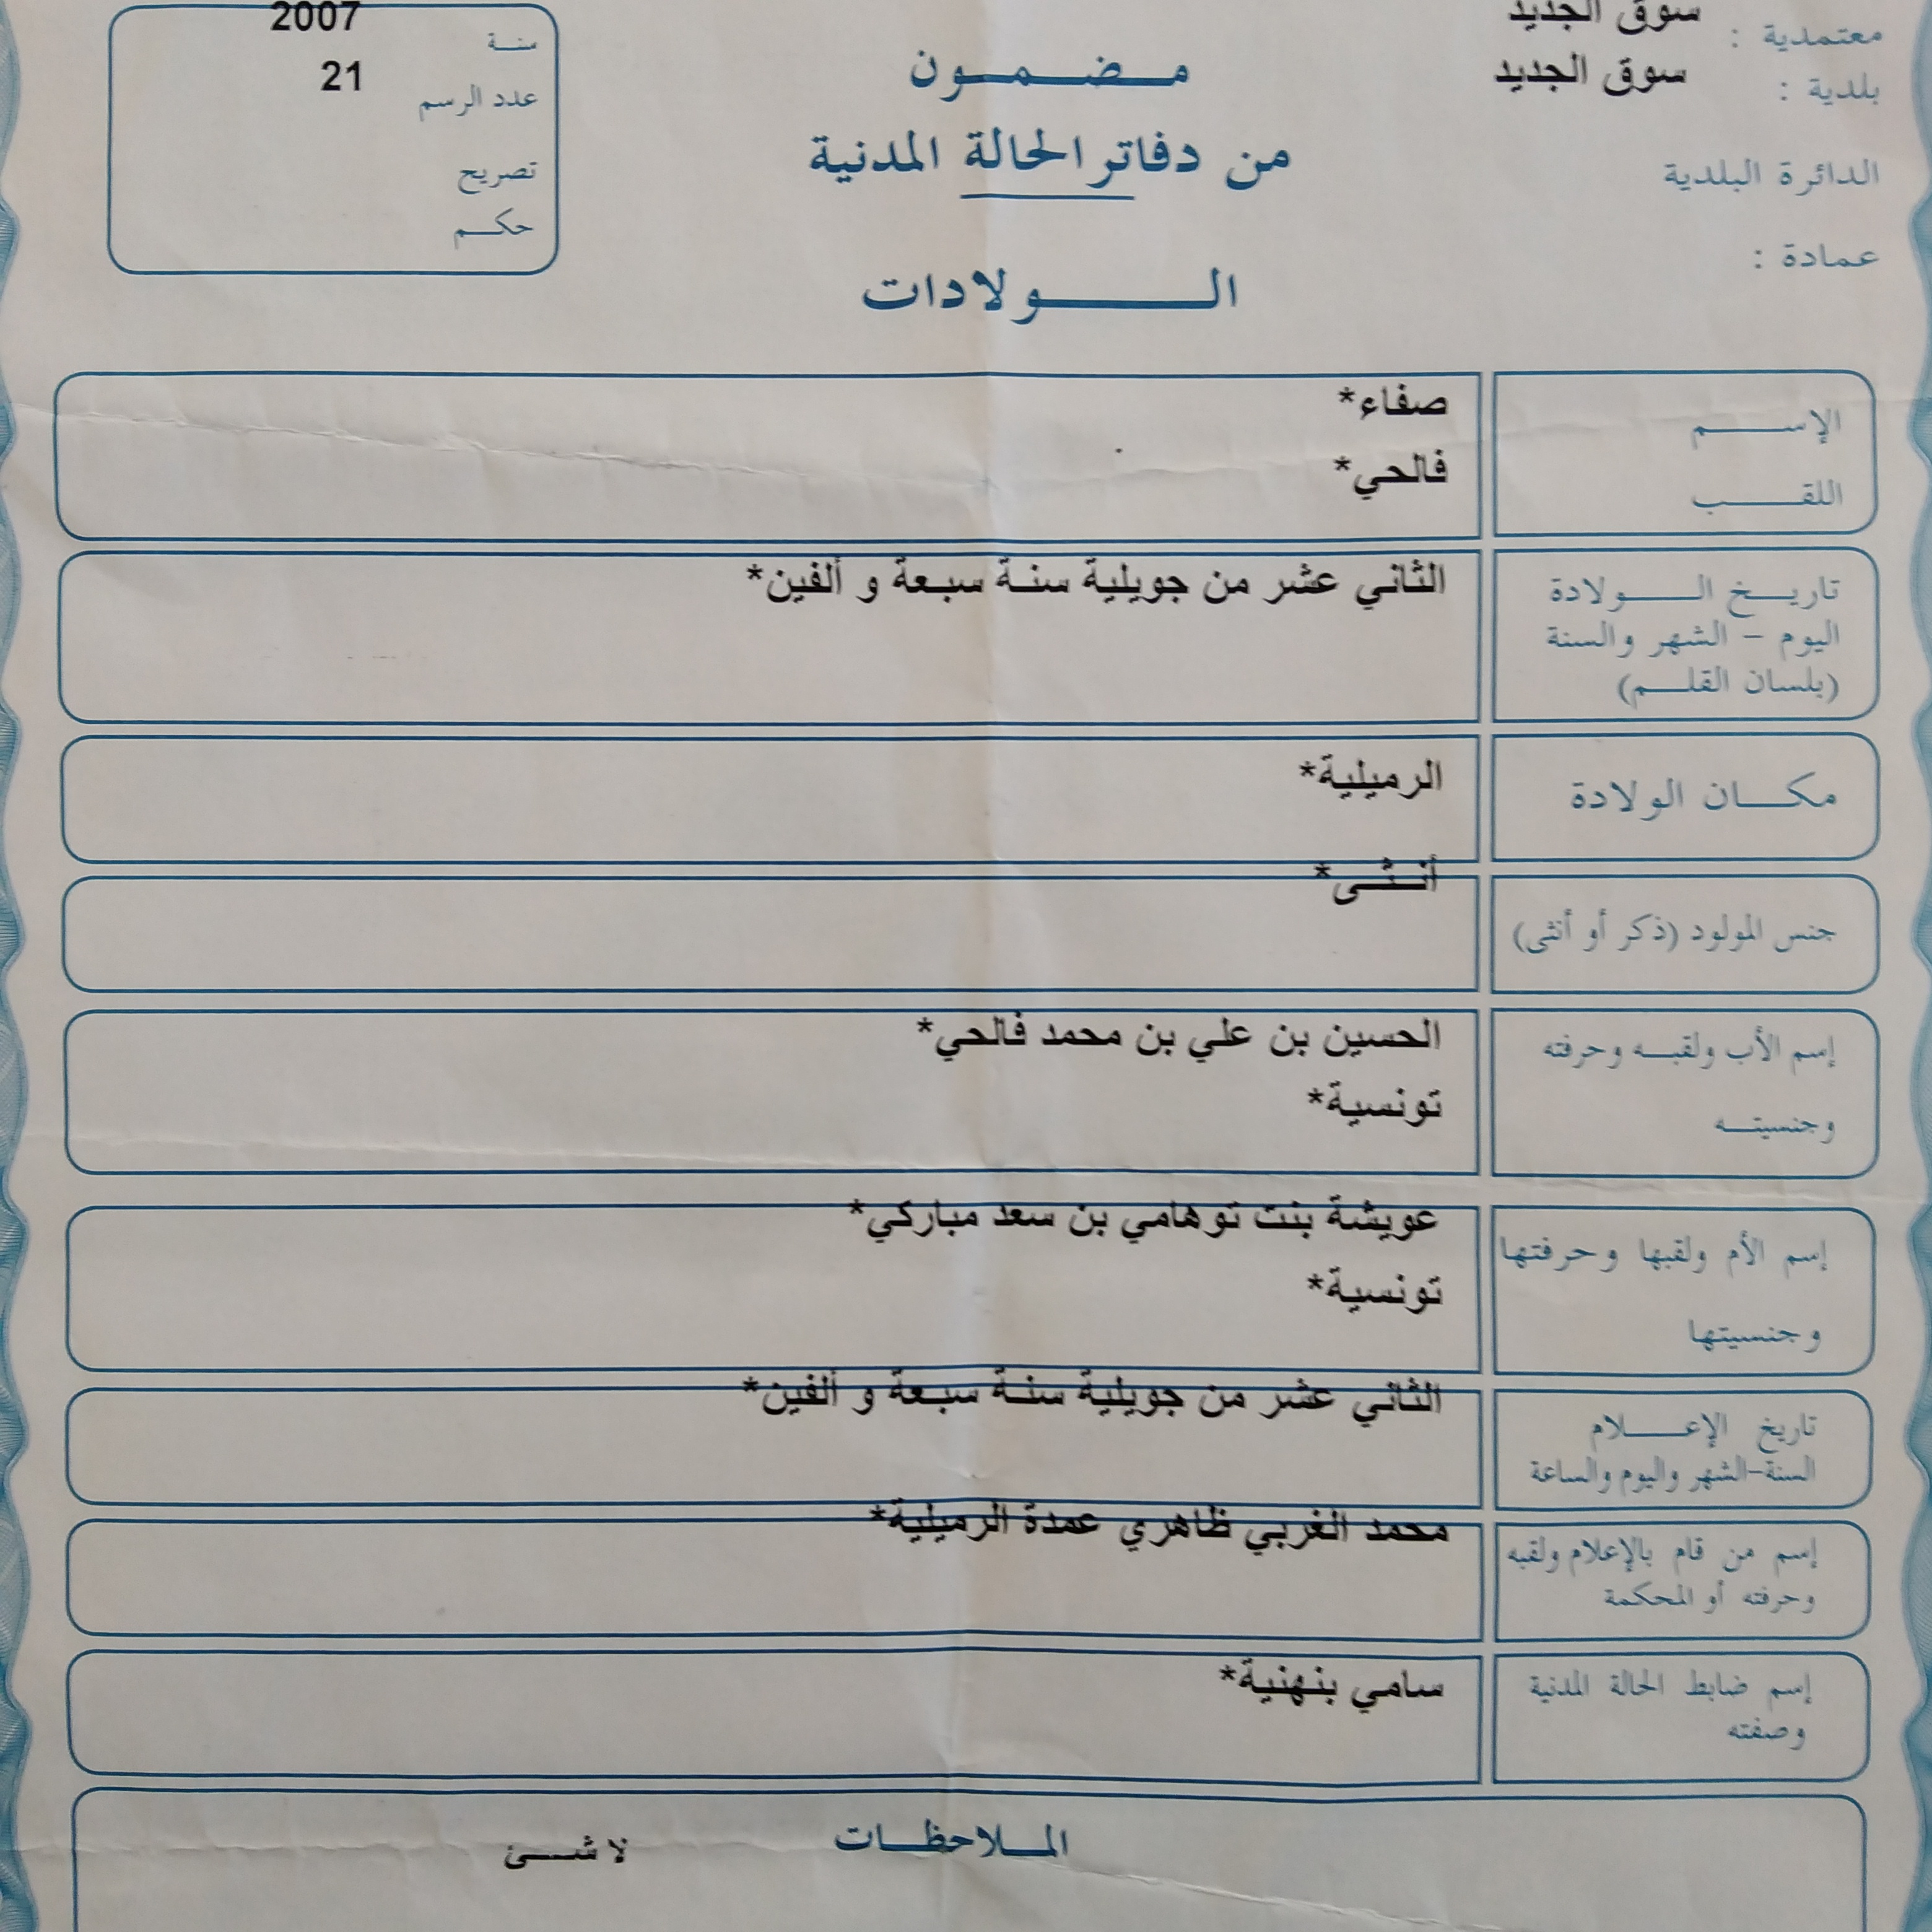 معتمدية : سوق الجديد
بلدية : سوق الجديد
الدائرة البلدية
عمادة :
مضمون
من دفاتر الحالة المدنية
الولادات
سنة 2007
عدد الرسم 21
تصريح
حكم
الإسم صفاء*
اللقب فالحي*
تاريخ الولادة الثاني عشر من جويلية سنة سبعة و ألفين*
اليوم – الشهر والسنة
(بلسان القلم)
مكان الولادة الرميلية*
جنس المولود (ذكر أو أنثى) أنثى*
إسم الأب ولقبه وحرفته الحسين بن علي بن محمد فالحي*
وجنسيته تونسية*
إسم الأم ولقبها وحرفتها عويشة بنت توهامي بن سعد مباركي*
وجنسيتها تونسية*
تاريخ الإعلام الثاني عشر من جويلية سنة سبعة و ألفين*
السنة-الشهر واليوم والساعة
إسم من قام بالإعلام ولقبه محمد الغربي ظاهري عمدة الرميلية*
وحرفته أو المحكمة
إسم ضابط الحالة المدنية سامي بنهنية*
وصفته
الملاحظات لا شئ